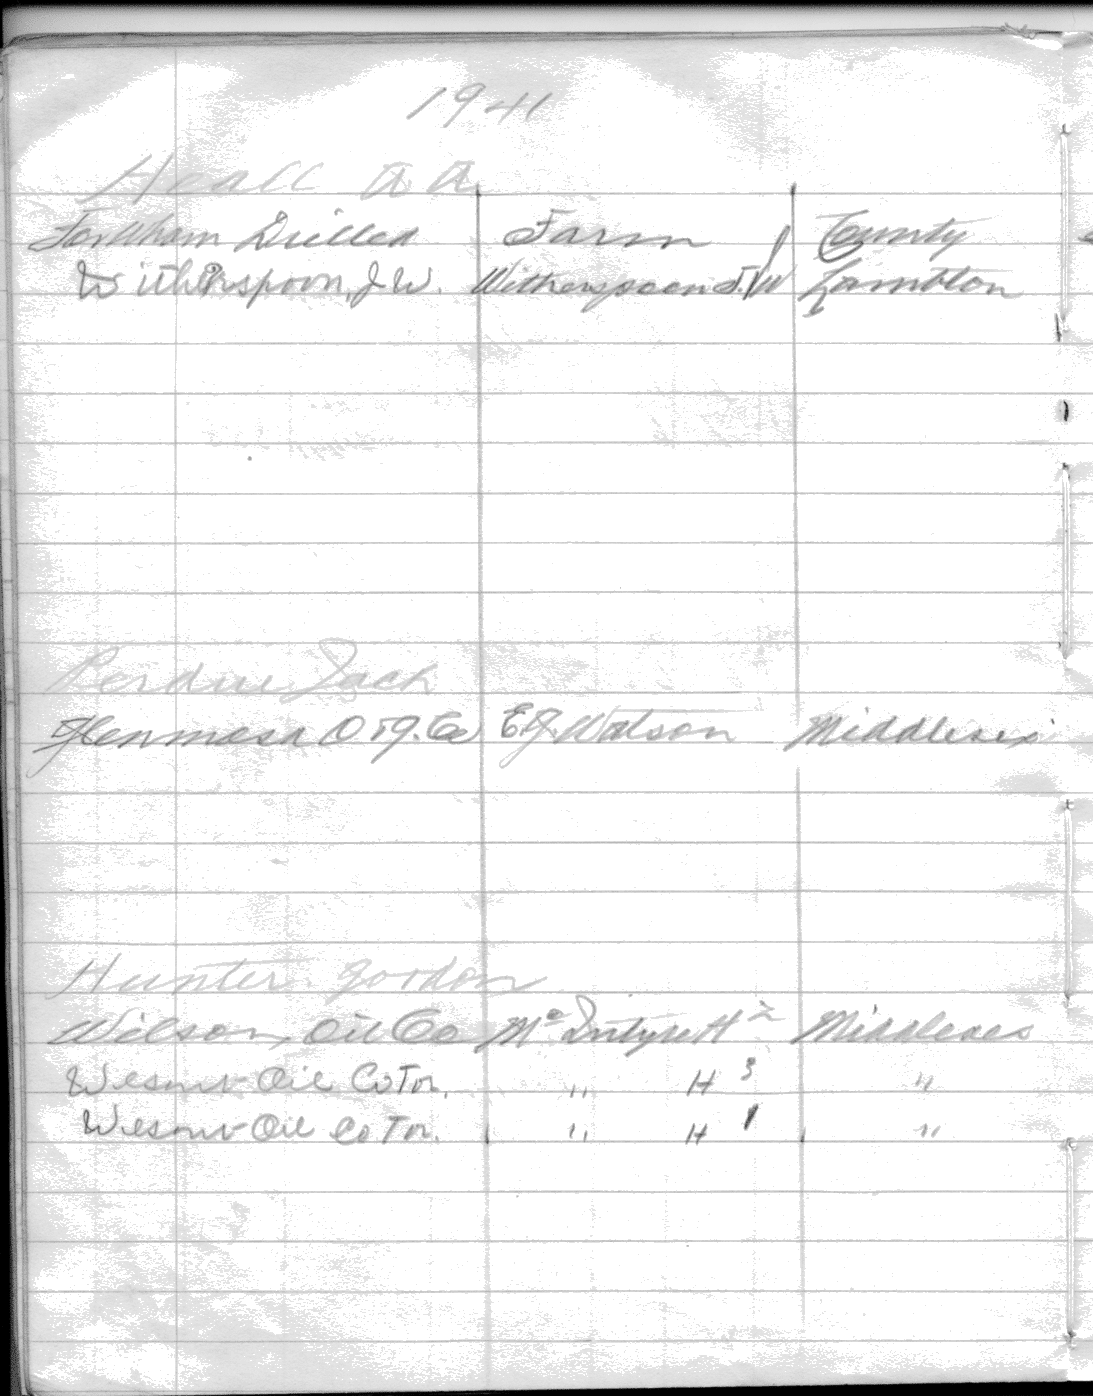 1941
Heall A A
For Whom Drilled Farm County
Witherspoon, J W. Witherspoon J. W Lambton
Perdue Jack
Glenmora O & G. Co E J. Watson Middlesex
Hunter Gordon
Wilson, Oil Co Mc Intyre H 2 Middlesex
Oil Co Tor. " H 3 "
Oil Co Tor. " H 1 "